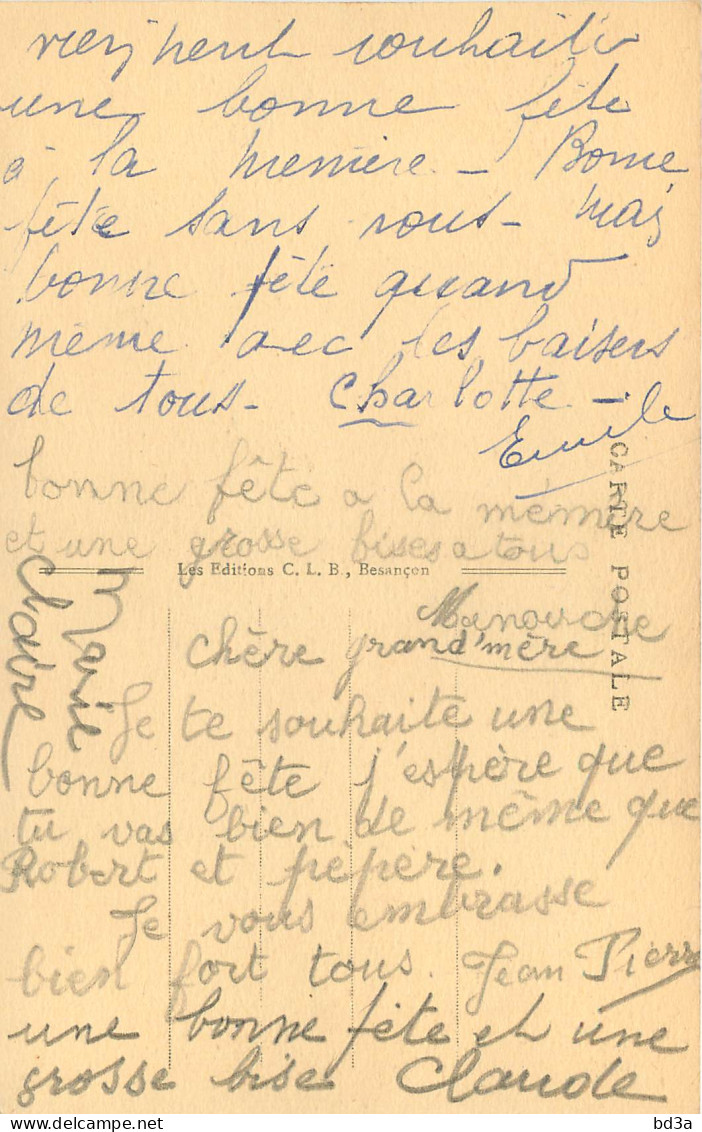 viennent souhaiter
une bonne fête
à la mémère - Bonne
fête sans nous - mais
bonne fête quand
même avec les baisers
de tous - Charlotte -
Emile
bonne fête a la mémère
et une grosse bises a tous
Marie
Claire
Les Editions C. L. B., Besançon
CARTE POSTALE
Manouche
chère grand'mère
Je te souhaite une
bonne fête j'espère que
tu vas bien de même que
Robert et pépère.
Je vous embrasse
bien fort tous. Jean Pierre
une bonne fête et une
grosse bise Claude
bd3a